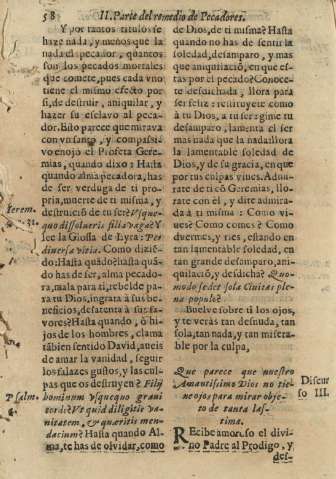 58 II. Parte del remedio de Pecadores.
Y por tantos titulos se
haze nada, y menos que la
nada el pecador, quantos
son los pecados mortales
que comete, pues cada vno
tiene el mismo efecto por
si, de destruir, aniquilar, y
hazer su esclavo al peca-
dor. Esto parece que mirava
con vn santo, y compassi-
vo enojo el Profeta Gere-
mias, quando dixo: Hasta
quando alma pecadora, has
de ser verduga de ti pro-
pria, muerte de ti misma, y
destruició de tu ser? Vsque-
quo dissolueris filia vaga? Y
lee la Glossa de Lyra: Per
diuersa vitia. Como dizié-
do: Hasta quãdo? hasta quã-
do has de ser, alma pecado-
ra, mala para ti, rebelde pa-
ra tu Dios, ingrata à sus be-
neficios, desatenta à sus fa-
vores? Hasta quando, ò hi-
jos de los hombres, clama
tãbien sentido David, aueis
de amar la vanidad, seguir
los falazes gustos, y las cul-
pas que os destruyen? Filij
hominum vsquequo graui
corde? Vt quid diligitis va-
nitatem, & quæritis men-
dacium? Hasta quando Al-
ma, te has de olvidar, como
Ierem.
Psalm.
de Dios, de ti misma? Hasta
quando no has de sentir la
soledad, desamparo, y mas
que aniquilació, en que es-
tàs por el pecado? Conoce-
te desdichada, llora para
ser feliz: restituyete como
à tu Dios, à tu ser: gime tu
desamparo, lamenta el ser
mas nada que la nada: llora
la lamentable soledad de
Dios, y de su gracia, en que
por tus culpas vives. Admi-
rate de ti có Geremias, llo-
rate con èl, y dite admira-
da à ti misma: Como vi-
ues? Como comes? Como
duermes, y ries, estando en
tan lamentable soledad, en
tan grande desamparo, ani-
quilació, y desdicha? Quo-
modo sedet sola Ciuitas ple-
na populo?
Buelve sobre ti los ojos,
y te veràs tan desnuda, tan
sola, tan nada, y tan misera-
ble por la culpa,
Que parece que nuestro
Amantissimo Dios no tie-
ne ojos para mirar obje-
to de tanta las-
tima.
Discur
so III.
Recibe amoroso el divi-
no Padre al Prodigo, y
des-